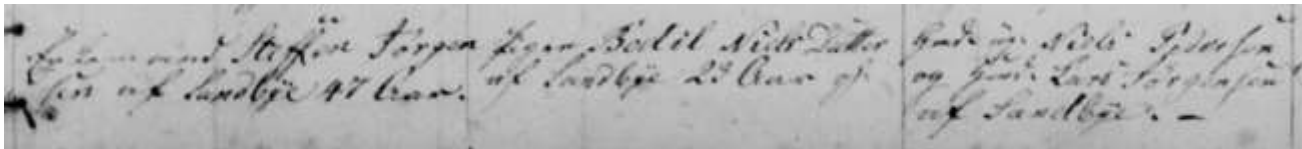 Enkemand Steffen Jørgen
sen af Sandbÿe 47 Aar.
Pigen Bodil Niels Datter
af Sandbÿe 23 Aar gl.
Niels Pedersen
og Lars Jørgensen
af Sandbÿe. –